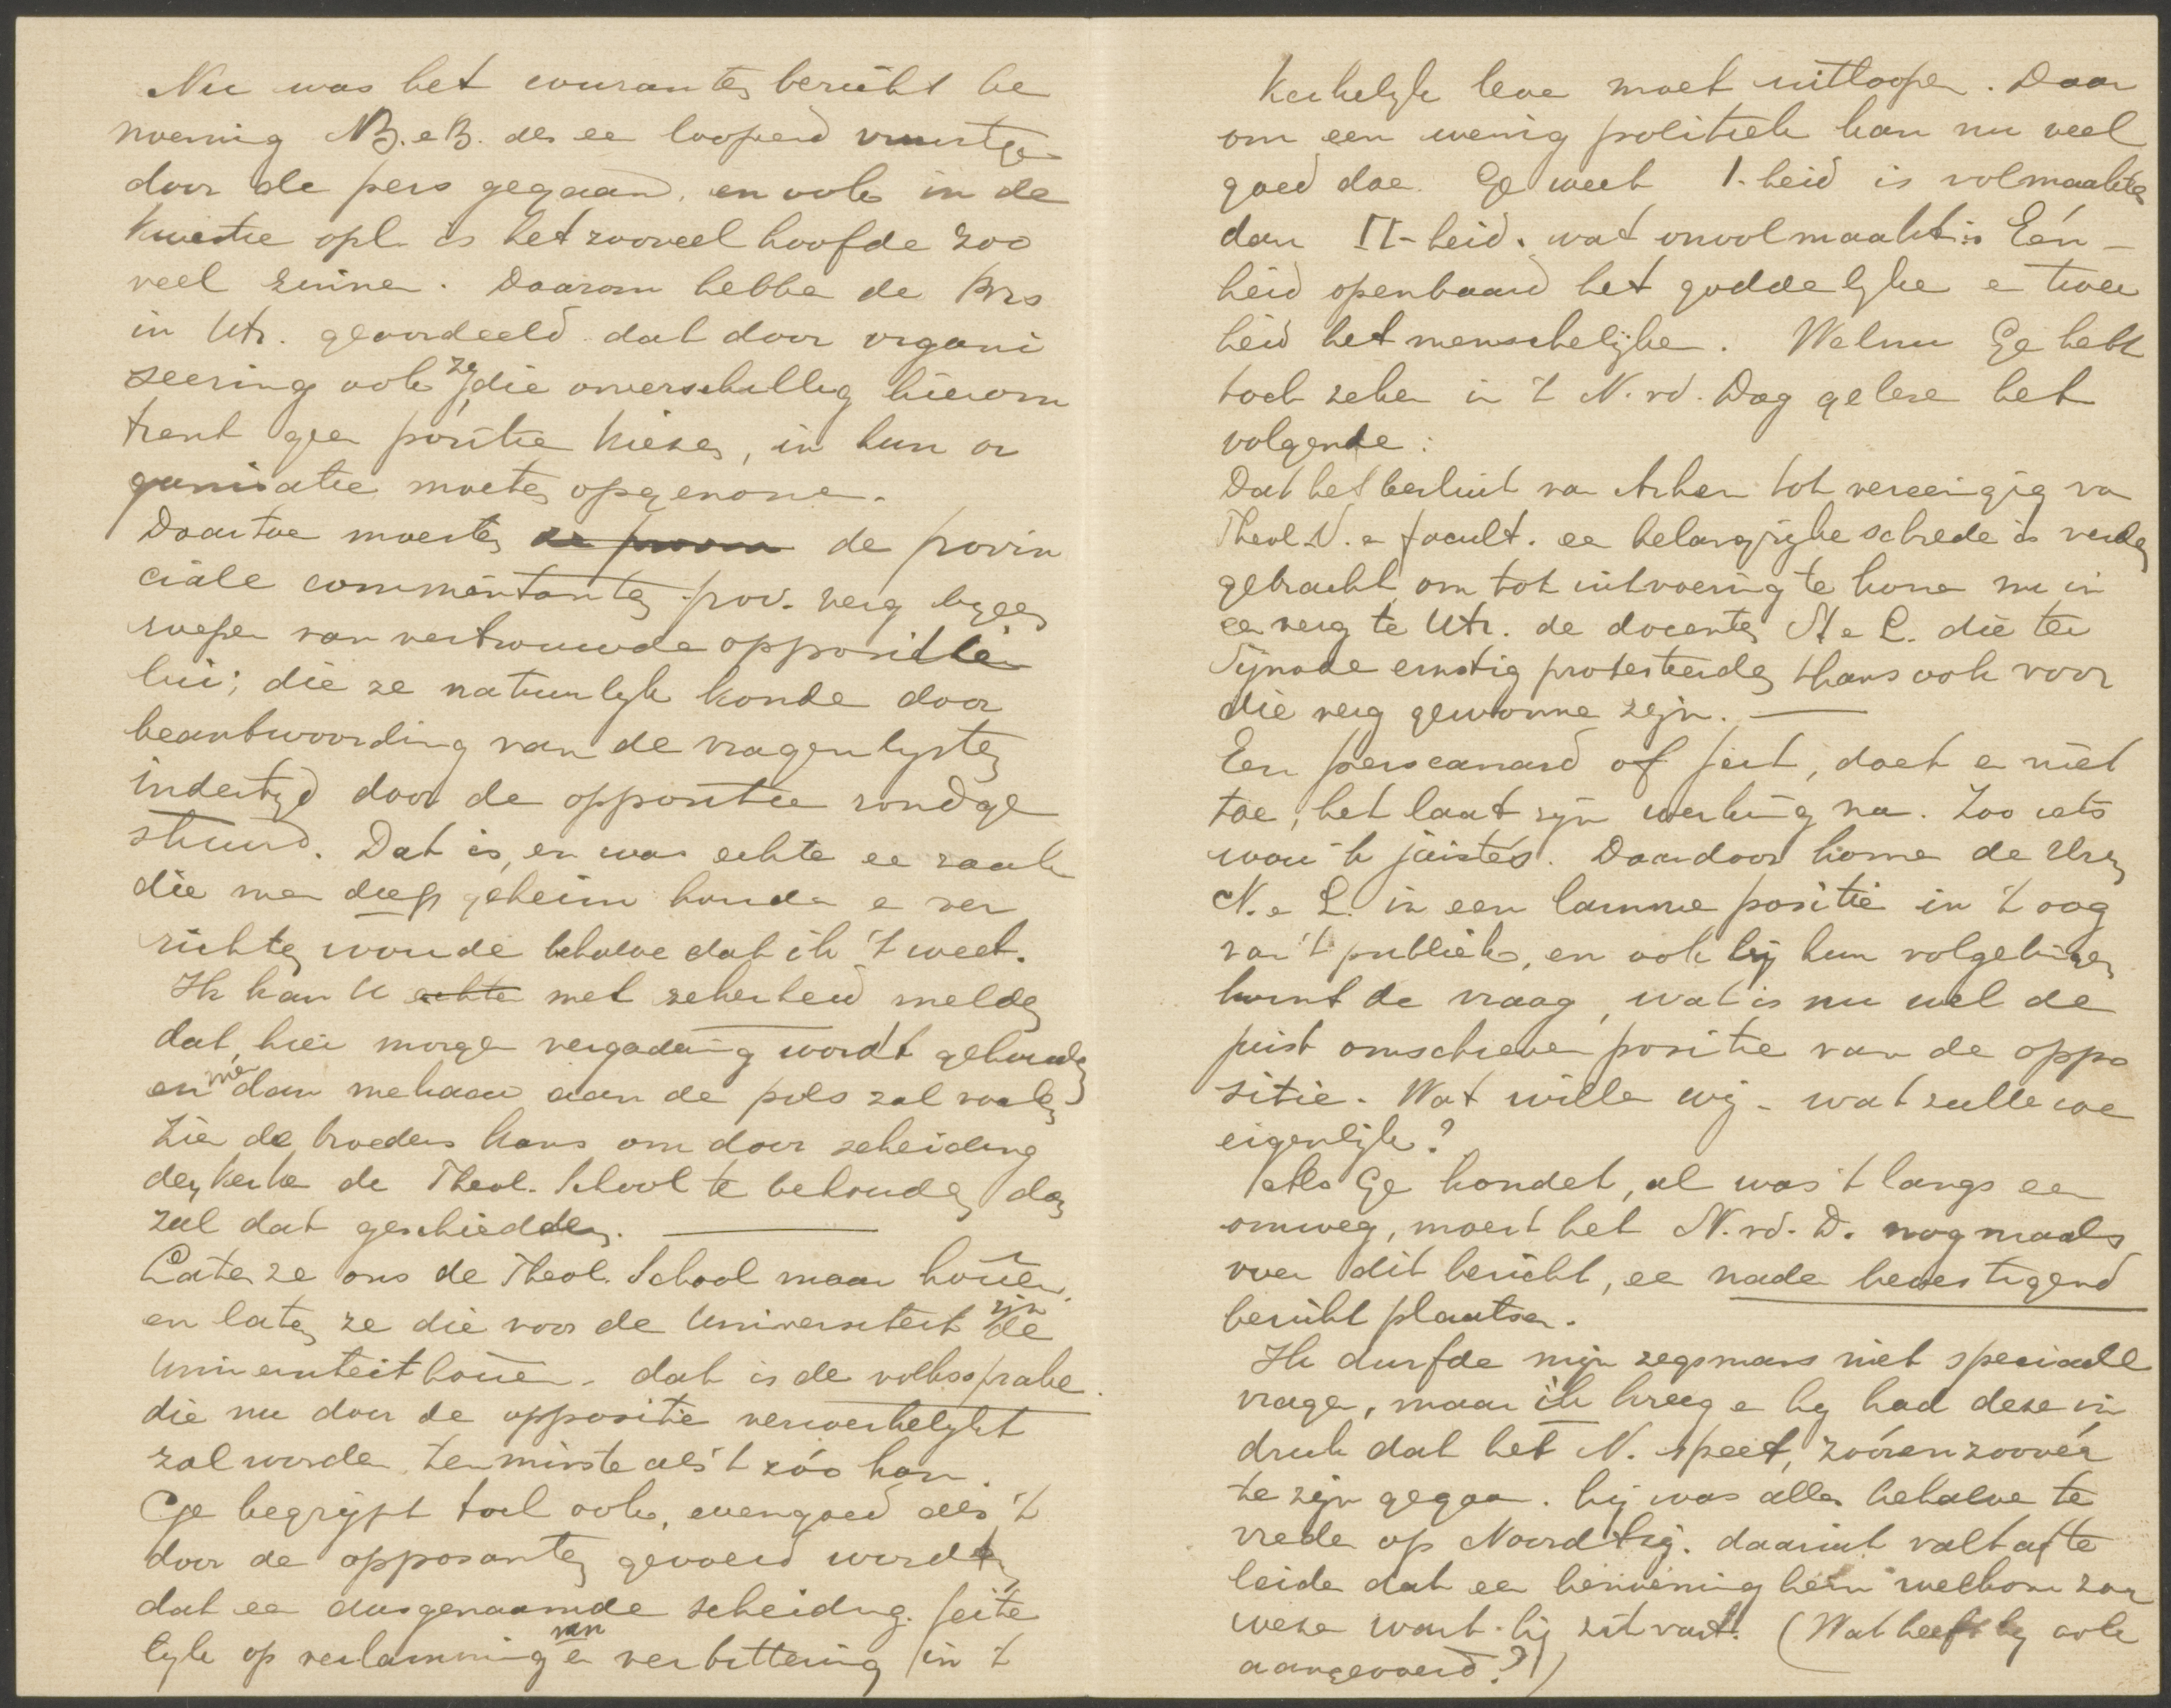 Nu was het couranten bericht be
noeming B. e B. als ee loopend vuurtje
door de pers gegaan, en ook in de
kwestie opl. is het zooveel hoofde zoo
veel zinnen. Daarom hebbe de Brs
in Utr. geoordeeld dat door organi
seering ook zy, die onverschillig hierom
trent geen positie kiezen, in hun or
ganisatie moeten opgenome.
Daartoe moesten de provin
ciale committanten prov. verg byeen
roepen van vertrouwde oppositie
lui; die ze natuurlyk konde door
beantwoording van de vragenlysten
indertyd door de oppositie rondge
stuurd. Dat is, en was echte ee zaak
die men diep geheim houde e ver
richten woude behalve dat ik 't weet.
Ik kan U echte met zekerheid melden
dat, hier morge vergadering wordt gehouden
en men dan mekaar aan de pols zal voelen
Zien de broeders kans om door scheiding
der kerke de Theol. School te behouden dan
zal dat geschieden.
Laten ze ons de Theol. School maar houën,
en laten ze die voor de Universiteit zijn de
Universiteit houën. dat is de volkssprake
die nu door de oppositie verwerkelykt
zal worden, ten minste als 't zóo kan.
Ge begrypt toch ook, evengoed als 't
door de opposanten gevoeld wordt,
dat ee dusgenaamde scheiding. feite
lyk op verlamming van en verbittering in 't
Kerkelyk leve moet uitloopen. Daar
om een weinig politiek kan nu veel
goed doe. Ge weet 1-heid is volmaakter
dan II-heid. wat onvolmaakt is Eén-
heid openbaard het goddelyke e twee
heid het menschelijke. Welnu Ge hebt
toch zeker in 't N. rd. Dag geleze het
volgende:
Dat het besluit van Arhem tot vereeniging va
Theol. S. e facult. ee belangrijke schrede is verder
gebracht om tot uitvoering te kome nu in
ee verg te Utr. de docenten N e L. die ter
Synode ernstig protesteerden thans ook voor
die verg gewonne zijn.
Een perscanard of feit, doet e niet
toe, het laat zijn werking na. Zoo iets
wou 'k juist es. Daardoor kome de Hren
N. e L. in een lamme positie in 't oog
van 't publiek, en ook bij hun volgelingen
komt de vraag, wat is nu wel de
juist omschreven positie van de oppo
sitie. Wat wille wij - wat zulle we
eigenlijk?
Als Ge kondet, al was 't langs een
omweg, moest het N. rd. D. nogmaals
over dit bericht, ee nader bevestigend
bericht plaatsen.
Ik durfde mijn zegsmans niet speciaal
vrage, maar ik kreeg e hy had deze in
druk dat het N. speet, zóó en zoovér
te zijn gegaan. hij was alles behalve te
vrede op Noordtzij. daaruit valt af te
leide dat ee benoeming hem welkom zou
weze want hij zit vast. (Wat heeft hy ook
aangevoerd?!)